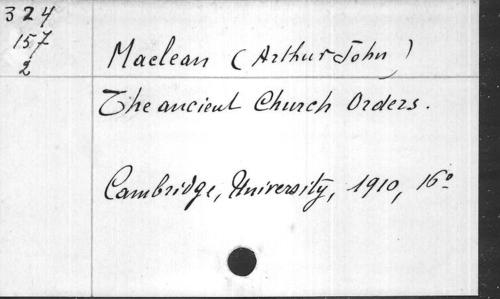 324
157
2
Maclean (Arthur John)
The ancient Church Orders.
Cambridge, University, 1910, 16º